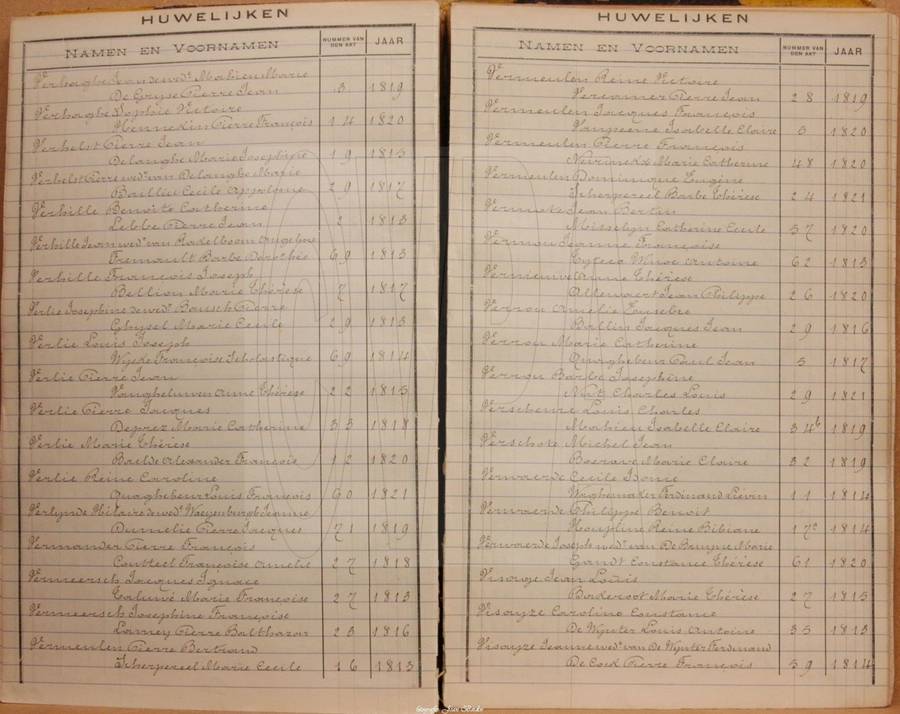 HUWELIJKEN
NAMEN EN VOORNAMEN NUMMER VAN DEN AKT JAAR
Verhaeghe Jean de wedr Mahieu Marie
De Gryse Pierre Jean 3 1819
Verhaeghe Sophie Victoire
Hennekin Pierre François 14 1820
Verhelst Pierre Jean
Delanghe Marie Josephine 19 1813
Verhelst Pierre wedr van Delanghe Marie
Baillie Cecile Appoline 29 1817
Verhille Benoite Catherine
Lebbe Pierre Jean 2 1813
Verhille Jean wedr van Adelboom Angeline
Fremault Barbe Dorothée 69 1813
Verhille François Joseph
Bellion Marie Thérèse 7 1817
Verlie Josephine de wedr Bousch Pierre
Ghysel Marie Cecile 29 1813
Verlie Louis Joseph
Wyde Françoise Scholastique 69 1814
Verlie Pierre Jean
Vanghelwen Anne Thérèse 22 1815
Verlie Pierre Jacques
Deprez Marie Catherine 33 1818
Verlie Marie Thérèse
Baelde Alexander François 12 1820
Verlie Reine Caroline
Quaghebeur Louis François 60 1821
Verlynde Hilaire de wedr Waeyenburgh Jeanne
Dumelie Pierre Jacques 71 1819
Vermander Pierre François
Coutteel Françoise Amelie 27 1818
Vermeersch Jacques Ignace
Caluwé Marie Françoise 27 1813
Vermeersch Josephine Françoise
Lamey Pierre Balthazar 23 1816
Vermeulen Pierre Bertrand
Scherpereel Marie Cecile 16 1813
HUWELIJKEN
NAMEN EN VOORNAMEN NUMMER VAN DEN AKT JAAR
Vermeulen Reine Victoire
Vercamer Pierre Jean 28 1819
Vermeulen Jacques François
Vanpeene Isabelle Claire 5 1820
Vermeulen Pierre François
Neuvinckx Marie Catherine 48 1820
Vermeulen Dominique Eugène
Scherpereel Barbe Thérèse 24 1821
Vermote Jean Bertin
Misselyn Catherine Cecile 57 1820
Vermou Jeanne Françoise
Cyteco Winoc Antoine 62 1813
Vernieuwe Anne Thérèse
Alleweert Jean Philippe 26 1820
Verrou Amelie Eusebre
Ballin Jacques Jean 29 1816
Verrou Marie Catherine
Quaghebeur Paul Jean 5 1817
Verrou Barbe Josephine
Charles Louis 29 1821
Verscheure Louis Charles
Mahieu Isabelle Claire 34b 1819
Verschote Michel Jean
Boerave Marie Claire 32 1819
Verwaerde Cecile Isonie
Waghemaker Ferdinand Liévin 11 1814
Verwaerde Philippe Benoit
Houfline Reine Bibiane 17 1814
Verwaerde Joseph wedr van De Bruyne Marie
Gandt Constance Thérèse 61 1820
Vinaege Jean Louis
Baderoot Marie Thérèse 27 1815
Visayze Caroline Constance
De Wynter Louis Antoine 35 1813
Visayze Jeanne wedr van De Wynter Ferdinand
De Coed Pierre François 39 1814